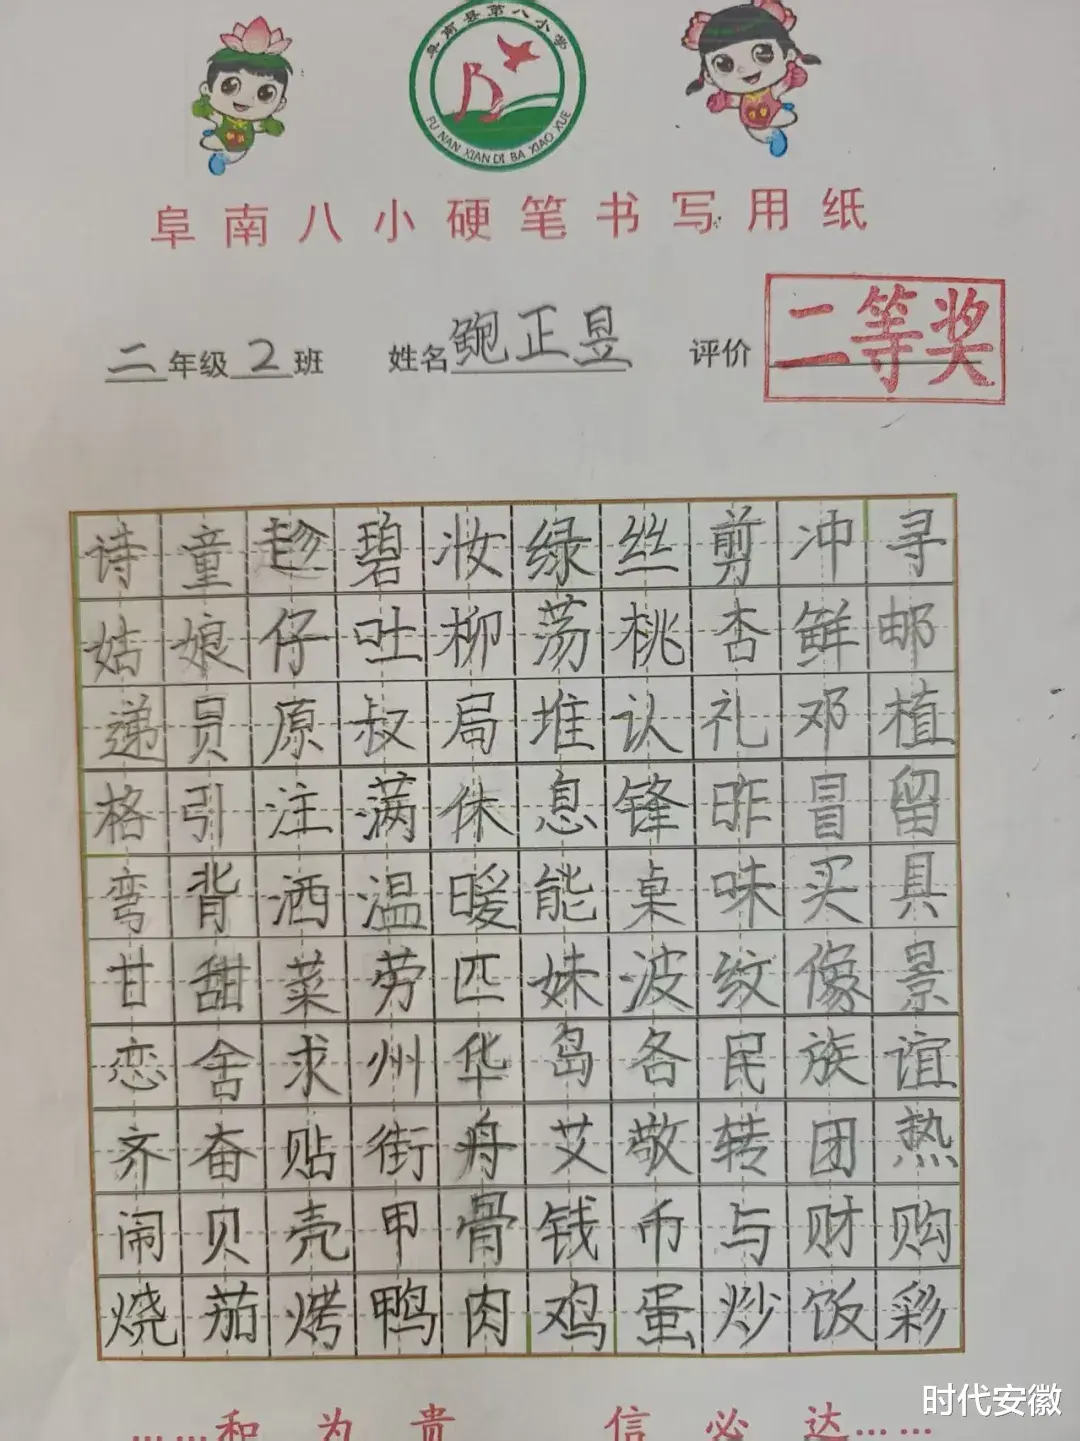 阜南县第八小学
FU NAN XIAN DI BA XIAO XUE
阜南八小硬笔书写用纸
二年级2班 姓名鲍正昱 评价
二等奖
诗童趁碧妆绿丝剪冲寻
姑娘仔吐柳荡桃杏鲜邮
递员原叔局堆认礼邓植
格引注满休息锋昨冒留
弯背洒温暖能桌味买具
甘甜菜劳匹妹波纹像景
恋舍求州华岛各民族谊
齐奋贴街舟艾敬转团热
闹贝壳甲骨钱币与财购
烧茄烤鸭肉鸡蛋炒饭彩
……和为贵 信必达……
时代安徽